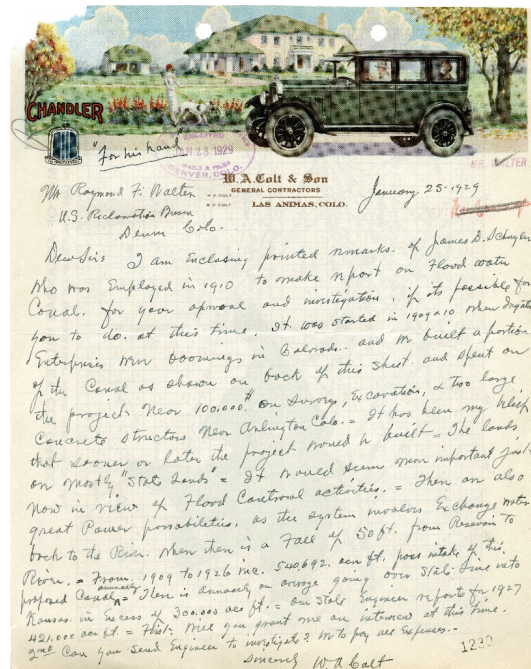 CHANDLER
"For his hand"
RECEIVED
JAN 28 1929
MAILS & FILES
DENVER, COLO.
MR. WALTER
W.A. Colt & Son
GENERAL CONTRACTORS
W. A. COLT
LAS ANIMAS, COLO.
January 25-1929
Mr Raymond F. Walter
U.S. Reclamation Bureau
Denver Colo.
Dear Sir: I am Enclosing printed remarks of James D. Schuyler
who was Employed in 1910 to make report on Flood water
Canal. for your approval and investigation, if its possible for
you to do. at this time. It was started in 1909 & 10 when Irrigation
Enterprises were booming in Colorado. and we built a portion
of the Canal as shown on back of this sheet. and spent on
the project Near 100,000.$ on surveys, Excavation, & two large
Concrete structures Near Arlington Colo. = It has been my belief
that sooner or later the project would be built = The lands
are mostly "State Lands" = It would seem more important just
now in view of Flood Control activities. = There are also
great Power possibilities, as the system involves Exchange water
back to the River. when there is a Fall of 50 ft. from Reservoir to
River. = From 1909 to 1926 inc. 540692. acre ft. pass intake of this
proposed Canal annually = There is annually on average going over State line into
Kansas. in Excess of 300.000 acre ft. = our State Engineer reports for 1927
421.000 acre ft. = First. Will you grant me an interview at this time.
2nd Can you send Engineer to investigate? We to pay all Expenses.-
Sincerely W A Colt